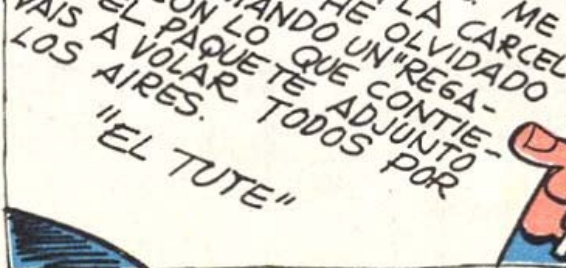 ME
LA CARCEL
HE OLVIDADO
MANDO UN "REGA-
CON LO QUE CONTIE-
EL PAQUETE ADJUNTO
VAIS A VOLAR TODOS POR
LOS AIRES.
"EL TUTE"